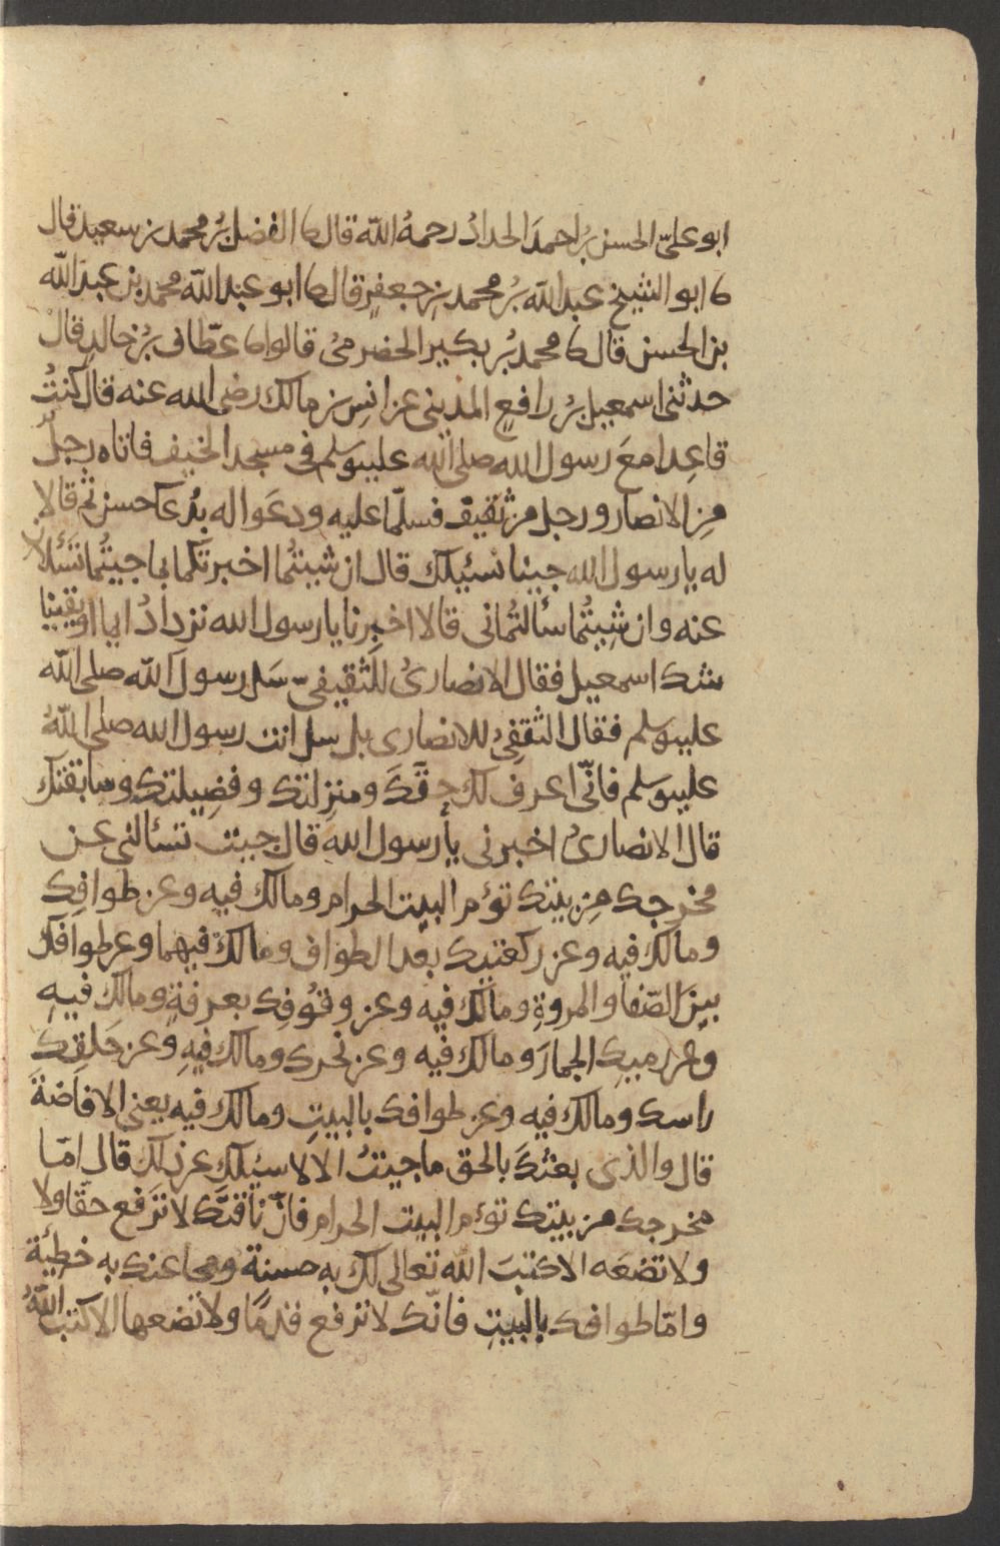 ابو علىّ الحسن بن احمدَ الحدادُ رحمهُ اللّه قال نا الفضل بنُ محمد بن سعيد قال
نا ابو الشيخ عبد اللّه بنُ محمد بنِ جعفرٍ قال نا ابو عبد اللّه محمد بن عبد اللّه
بن الحسن قال نا محمد بنُ بكير الحضرمىُ قالوا نا عطّاف بنُ خالدٍ قال
حدثنى اسمعيل بنُ رافعٍ المدينى عن انسِ بن مالك رضى الله عنه قال كنتُ
قاعِدا معَ رسول الله صلى اللّه عليه وسلم فى مسجد الخيف فاتاه رجلٌ
مِن الانصار ورجل من ثقيف فسلّما عليه ودعَوا له بدُعا حسن ثم قالا
له يا رسول الله جينا نسئيلك قال ان شيتُما اخبرتكما بما جيتُما تسَئلا
عنه وان شِيتُما سألتمُانى قالا اخبِرنا يا رسول الله نزدادُ ايمانا او يقينا
شك اسمعيل فقال الانصارىُ للثقيفىّ سَل رسولَ اللّه صلى اللّه
عليه وسلم فقال الثقفِىُ للانصارى بل سل انت رسول الله صلى اللّهُ
عليه وسلم فانّى اعرف لك حِقّكَ ومنزِلتك وفضِيلتك وسابقتك
قال الانصارىُ اخبرنى يا رسول اللهِ قال جيت تسألنى عن
مخرجك مِن بيتك تؤم البيت الحرام ومالك فيه وعن طوافِك
ومالك فيه وعن ركعتيك بعد الطواف ومالك فيهما وعن طوافك
بينَ الصّفا والمروةِ ومالك فيه وعن وقوُفِك بعرفةٍ ومالك فيهِ
وعن رميِك الجمارَ ومالك فيه وعن نحرك ومالك فيهِ وعن حَلقِك
راسك ومالك فيه وعن طوافك بالبيتِ ومالك فيه يعنى الافاضةَ
قال والذى بعثكَ بالحق ماجيتُ الا لاسئيلك عن ذلك قال امّا
مخرجك من بيتك تؤم البيت الحرام فانّ ناقتَك لا ترَفع خفّا ولا
ولا تضعَه الا كتبَ اللّه تعالى لك به حسنة ومحا عنك به خطيئة
وامّا طوافك بالبيتِ فانّك لا ترفع قدمًا ولا تضعها الا كتب اللّهُ